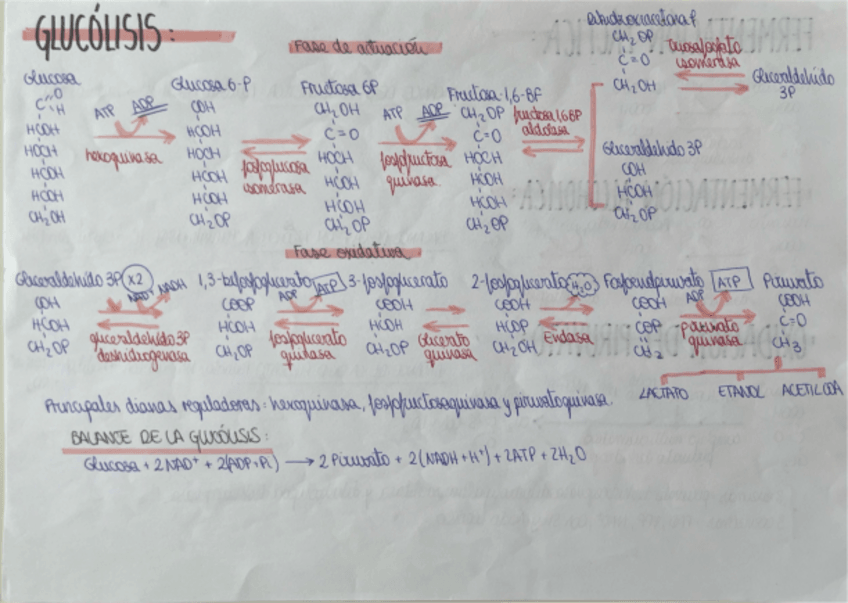 GLUCÓLISIS:
Fase de actuación
Glucosa
C=O
H
HCOH
HOCH
HCOH
HCOH
CH₂OH
ATP ADP
hexoquinasa
Glucosa 6-P
COH
HCOH
HOCH
HCOH
HCOH
CH₂OP
fosfoglucosa
isomerasa
Fructosa 6P
CH₂OH
C=O
HOCH
HCOH
HCOH
CH₂OP
ATP ADP
fosfofructosa
quinasa
Fructosa-1,6-BF
CH₂OP
C=O
HOCH
HCOH
HCOH
CH₂OP
fructosa 1,6BP
aldolasa
Dihidroxiacetona P
CH₂OP
C=O
CH₂OH
Triosafosfato
isomerasa
Gliceraldehído
3P
Gliceraldehído 3P
COH
HCOH
CH₂OP
Fase oxidativa
Gliceraldehído 3P x2
COH
HCOH
CH₂OP
NAD⁺ NADH
gliceraldehido 3P
deshidrogenasa
1,3-bifosfoglicerato
COOP
HCOH
CH₂OP
ADP ATP
fosfoglicerato
quinasa
3-fosfoglicerato
COOH
HCOH
CH₂OP
Glicerato
quinasa
2-fosfoglicerato
COOH
HCOP
CH₂OH
H₂O
Enolasa
Fosfoenolpiruvato
COOH
COP
CH₂
ADP ATP
Piruvato
quinasa
Piruvato
COOH
C=O
CH₃
LACTATO ETANOL ACETILCOA
Principales dianas reguladoras: hexoquinasa, fosfofructosaquinasa y piruvatoquinasa.
BALANCE DE LA GLUCÓLISIS:
Glucosa + 2NAD⁺ + 2(ADP+Pi) → 2 Piruvato + 2(NADH + H⁺) + 2ATP + 2H₂O